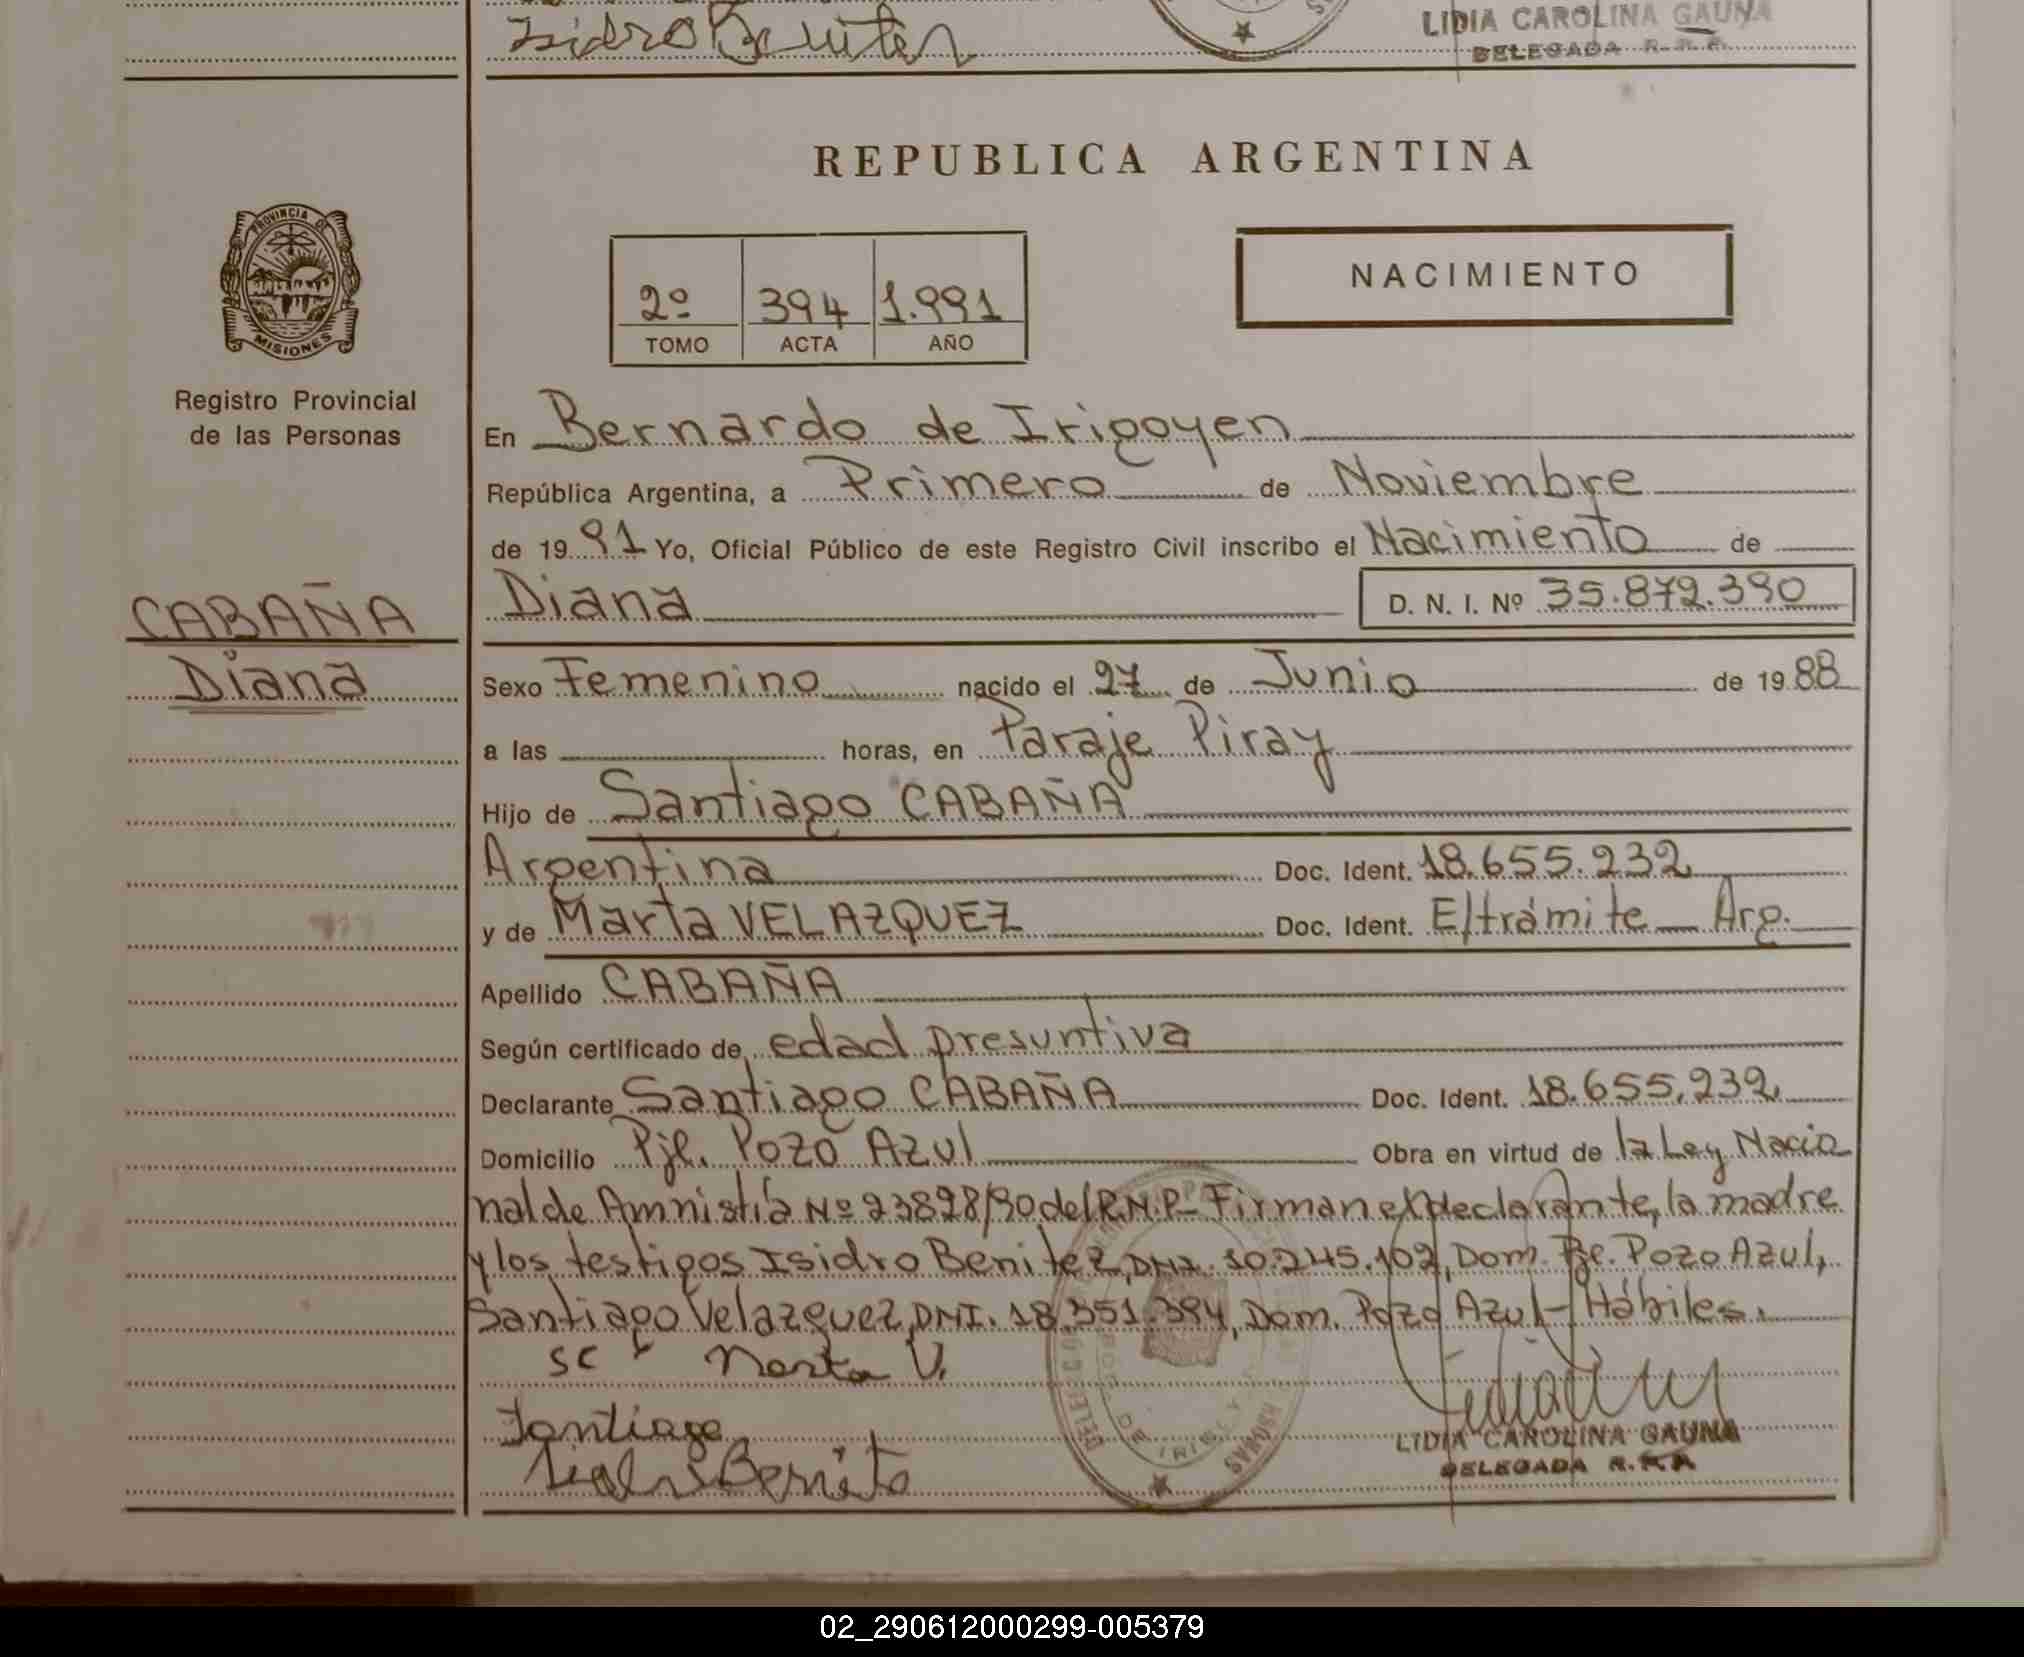 Isidro Benitez
LIDIA CAROLINA GAUNA
DELEGADA R.P.P.
REPUBLICA ARGENTINA
PROVINCIA DE
MISIONES
Registro Provincial
de las Personas
2º 394 1.991
TOMO ACTA AÑO
NACIMIENTO
En Bernardo de Irigoyen
República Argentina, a Primero de Noviembre
de 1991 Yo, Oficial Público de este Registro Civil inscribo el Nacimiento de
Diana D. N. I. Nº 35.872.390
CABAÑA
Diana
Sexo Femenino nacido el 27 de Junio de 1988
a las horas, en Paraje Piray
Hijo de Santiago CABAÑA
Argentina Doc. Ident. 18.655.232
y de Marta VELAZQUEZ Doc. Ident. E/trámite Arg.
Apellido CABAÑA
Según certificado de edad presuntiva
Declarante Santiago CABAÑA Doc. Ident. 18.655.232
Domicilio Pje. Pozo Azul Obra en virtud de la Ley Nacio
nal de Amnistía Nº 23828/90 del R.N.P- Firman el declarante, la madre
y los testigos Isidro Benitez, DNI. 10.245.102, Dom. Pje. Pozo Azul,
Santiago Velazquez, DNI. 18.351.394, Dom. Pozo Azul- Hábiles.
SC Marta V.
Santiago
Isidro Benitez
LIDIA CAROLINA GAUNA
DELEGADA R.P.P.
02_290612000299-005379